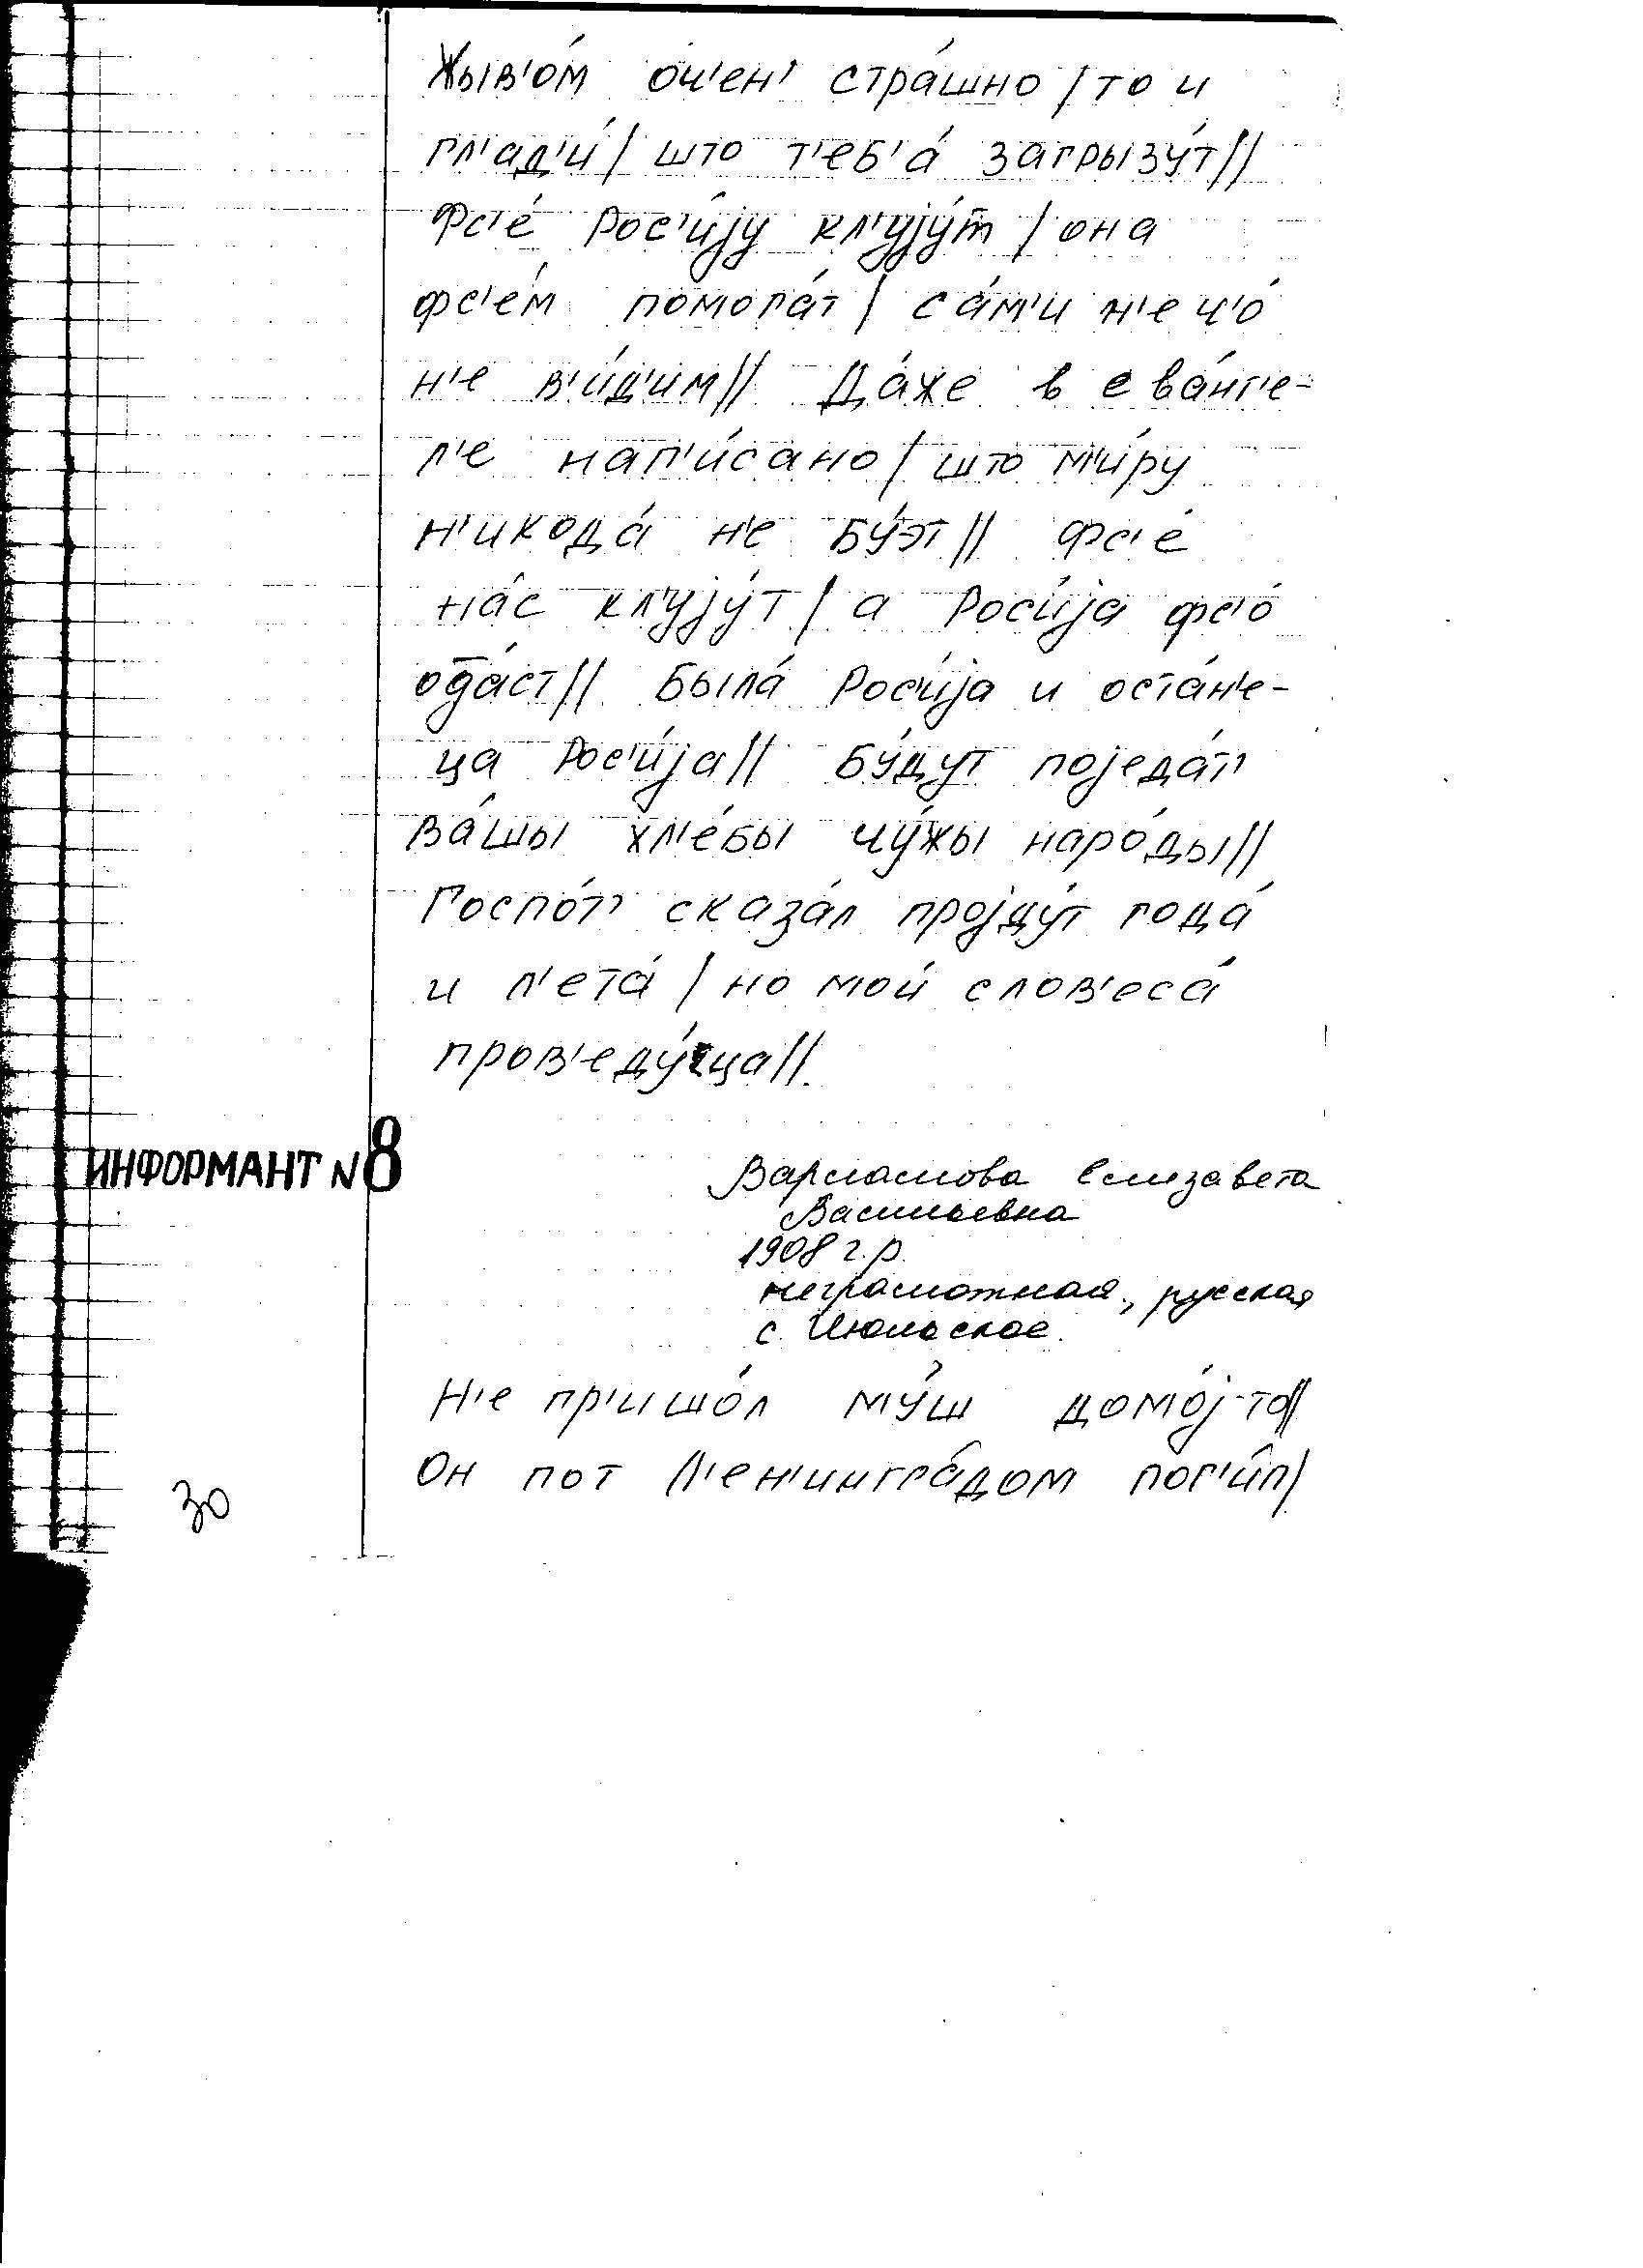 Жыв'о́м о́ч'ен' стра́шно / то и
гл'ад'и́ / што т'еб'а́ загрызу́т //
Фс'е́ Рос'и́jу кл'уjу́т / она
фс'е́м помога́т / са́м'и н'е ч'о́
н'е в'и́д'им // Да́же в ева́нг'е-
л'е нап'и́сано / што м'и́ру
н'икода́ н'е бу́эт // Фс'е́
на́с кл'уjу́т / а Рос'и́jа фс'о́
ода́ст // Была́ Рос'и́jа и оста́н'е-
ца Рос'и́jа // Бу́дут поjеда́т'
ва́шы хл'е́бы чу́жы наро́ды //
Госпо́т' сказа́л проjду́т года́
и л'ета́ / но мои́ слов'еса́
пров'еду́тца //
ИНФОРМАНТ N 8
Варламова Елизавета
Васильевна
1908 г.р.
неграмотная, русская
с. Июльское.
Н'е пр'ишо́л му́ш домо́j-то //
Он пот Л'ен'ингра́дом пог'и́п /
30